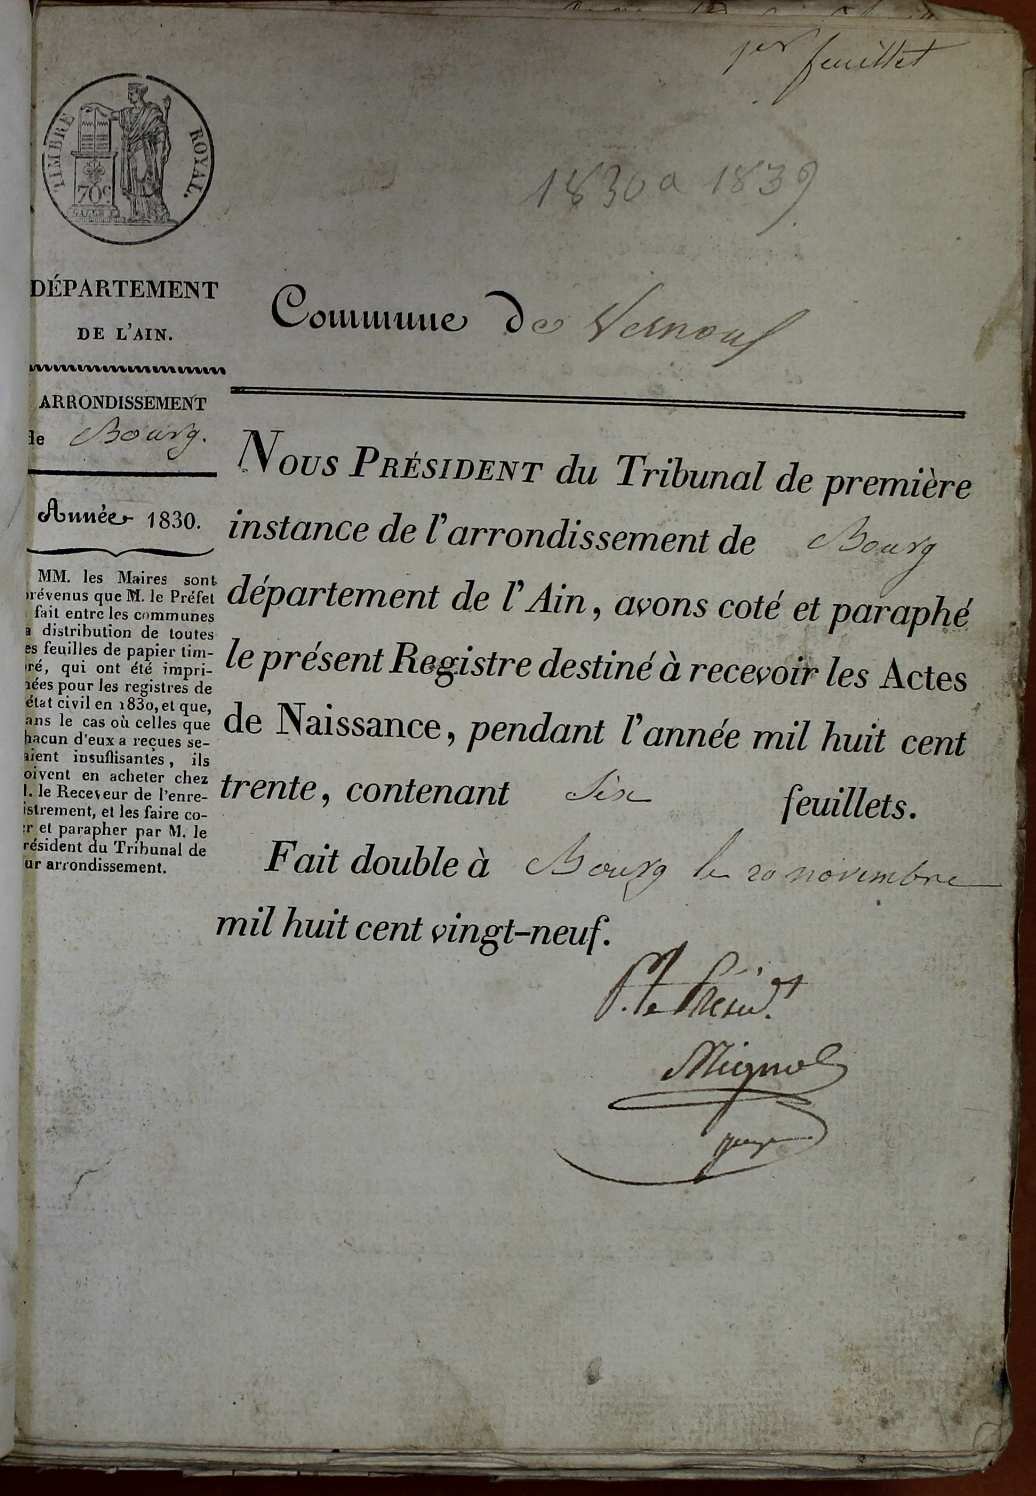 1er feuillet
TIMBRE ROYAL.
70c
1830 a 1839
DÉPARTEMENT
DE L'AIN.
Commune de Vernoux
ARRONDISSEMENT
de Bourg.
Année 1830.
MM. les Maires sont
prévenus que M. le Préfet
fait entre les communes
la distribution de toutes
es feuilles de papier tim-
bré, qui ont été impri-
mées pour les registres de
état civil en 1830, et que,
ans le cas où celles que
hacun d'eux a reçues se-
aient insuffisantes, ils
oivent en acheter chez
M. le Receveur de l'enre-
istrement, et les faire co-
er et parapher par M. le
résident du Tribunal de
ur arrondissement.
NOUS PRÉSIDENT du Tribunal de première
instance de l'arrondissement de Bourg
département de l'Ain, avons coté et paraphé
le présent Registre destiné à recevoir les Actes
de Naissance, pendant l'année mil huit cent
trente, contenant Six feuillets.
Fait double à Bourg le 20 novembre
mil huit cent vingt-neuf.
P. le Présid.t